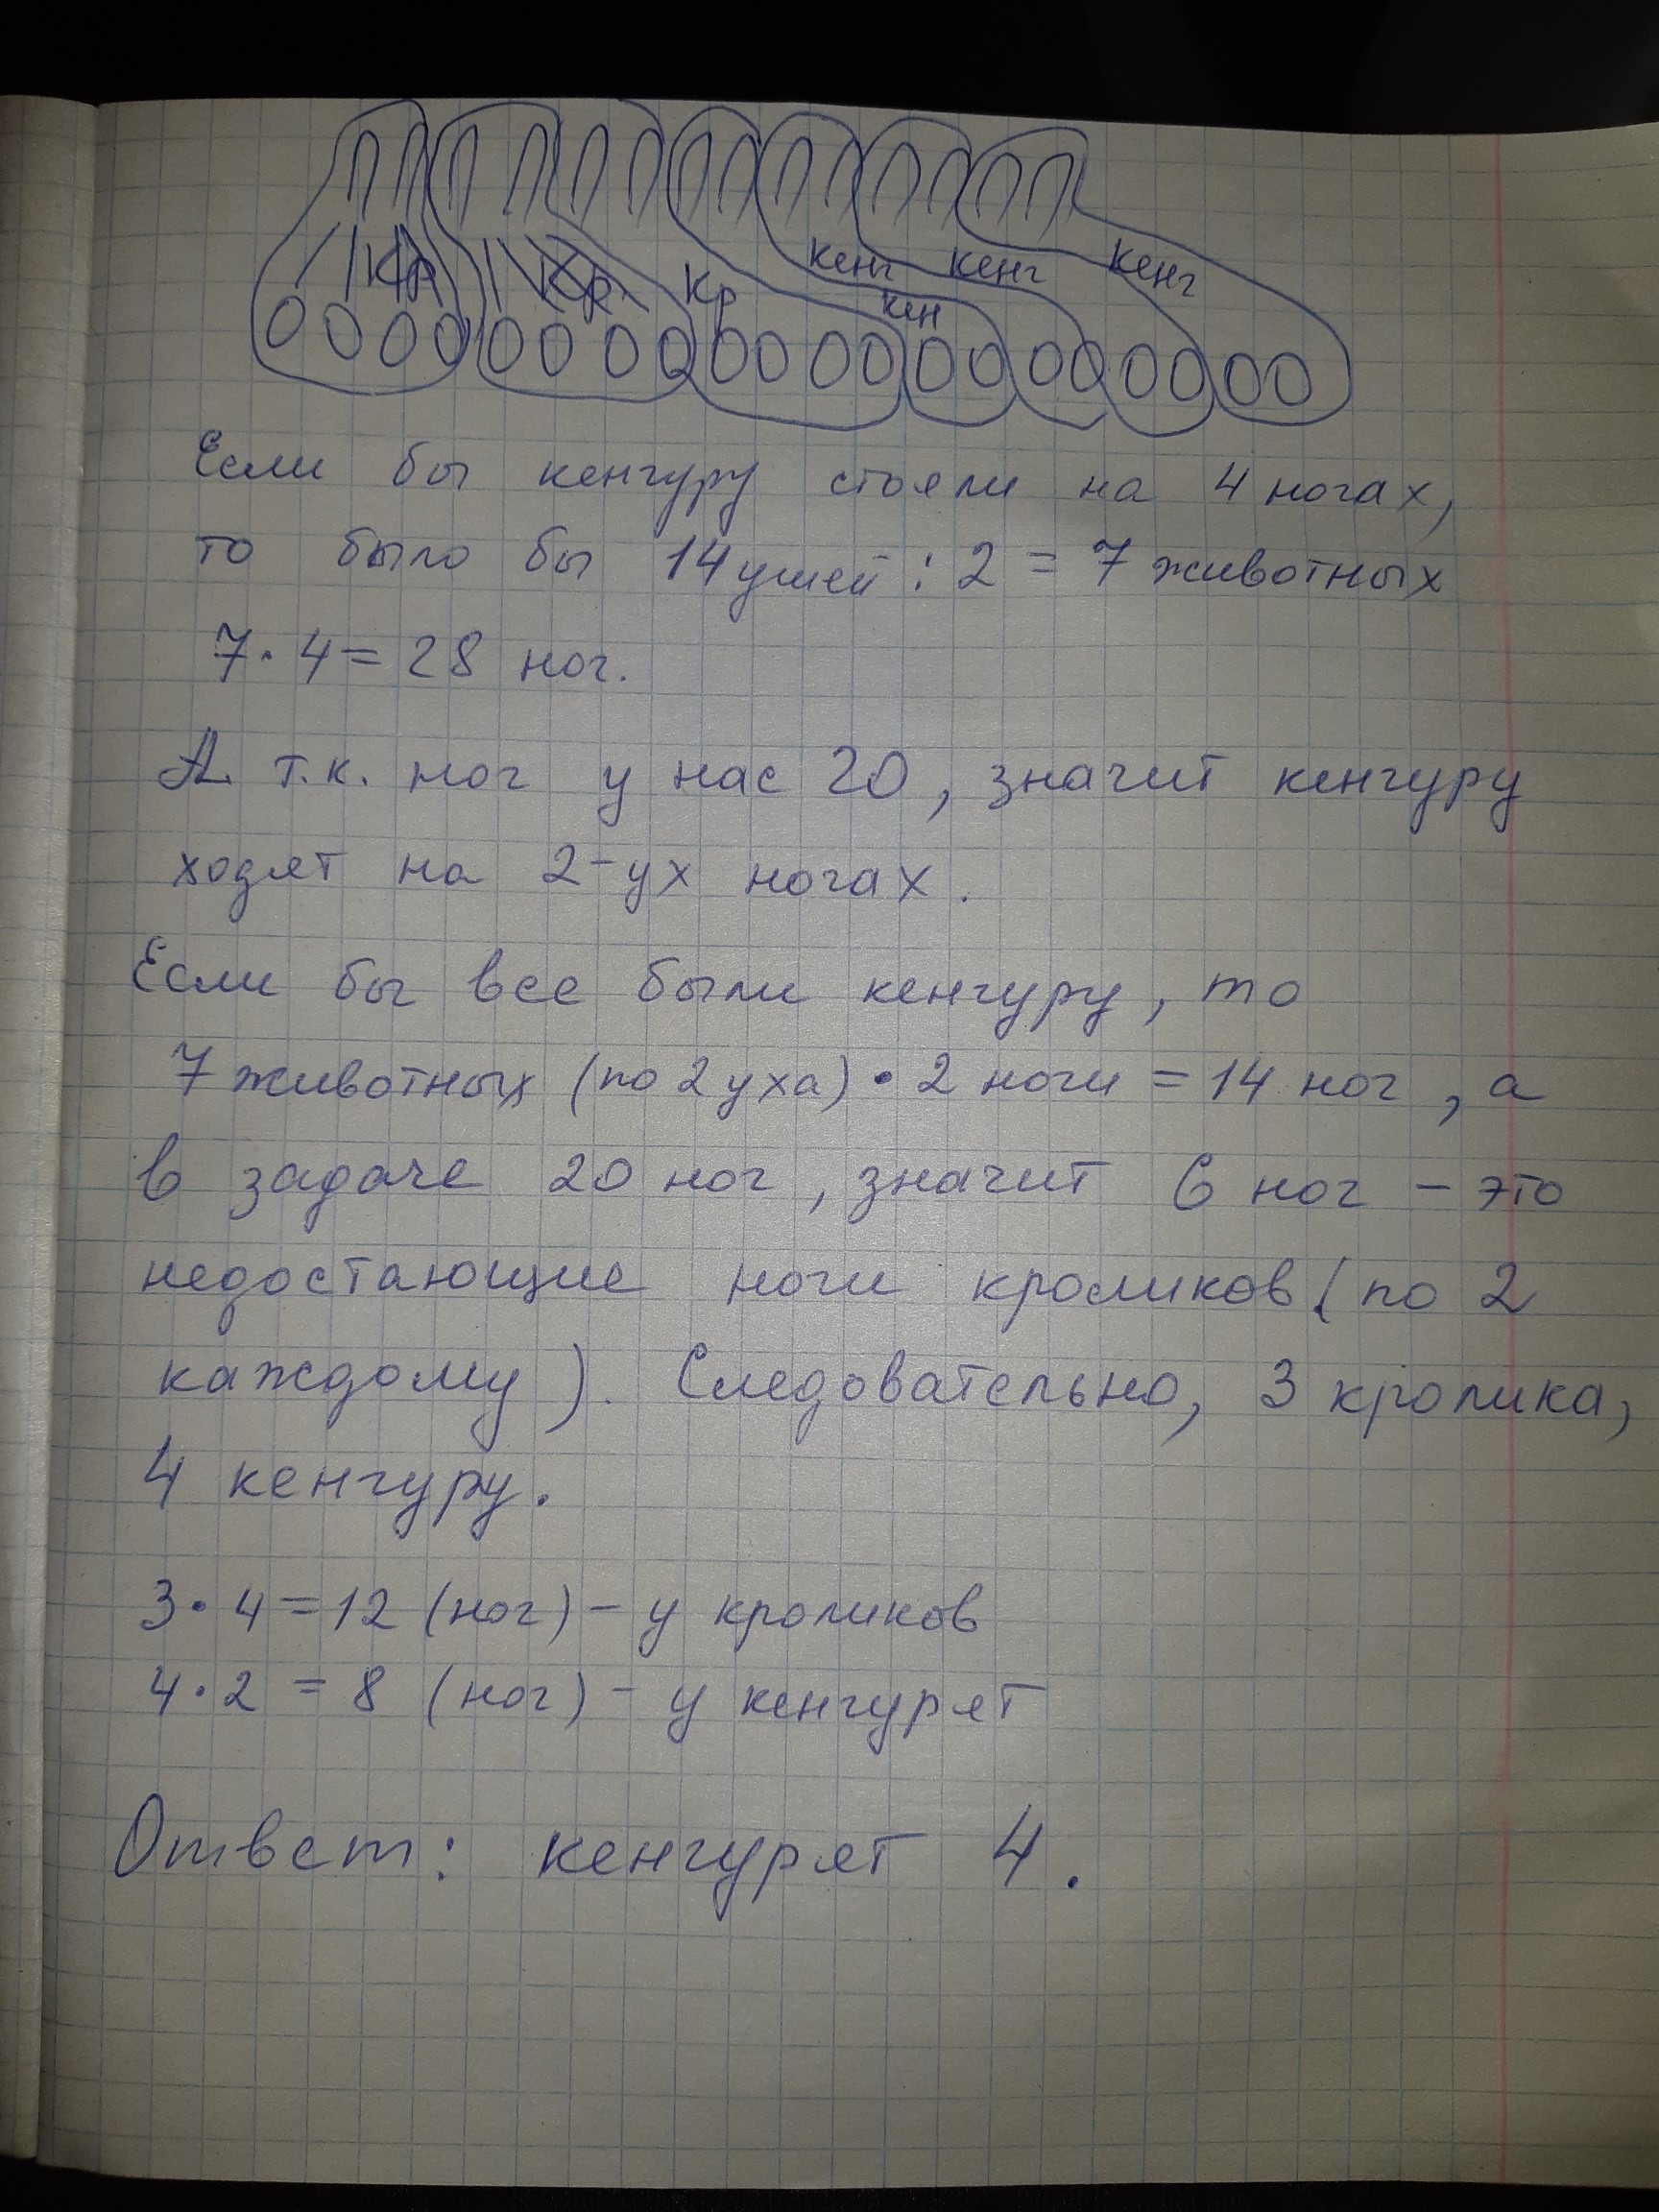 Кр Кр Кр кенг кенг кенг
кен
Если бы кенгуру стояли на 4 ногах,
то было бы 14 ушей : 2 = 7 животных
7 · 4 = 28 ног.
А т.к. ног у нас 20, значит кенгуру
ходят на 2-ух ногах.
Если бы все были кенгуру, то
7 животных (по 2 уха) · 2 ноги = 14 ног, а
в задаче 20 ног, значит 6 ног – это
недостающие ноги кроликов (по 2
каждому). Следовательно, 3 кролика,
4 кенгуру.
3 · 4 = 12 (ног) – у кроликов
4 · 2 = 8 (ног) – у кенгурят
Ответ: кенгурят 4.